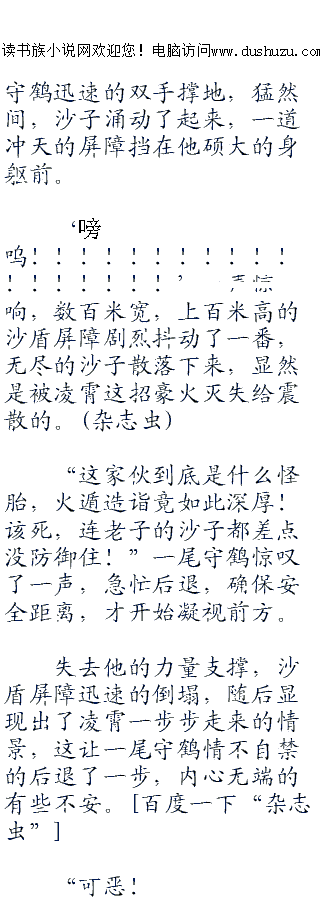 读书族小说网欢迎您！电脑访问www.dushuzu.com
守鹤迅速的双手撑地，猛然
间，沙子涌动了起来，一道
冲天的屏障挡在他硕大的身
躯前。
‘嗙
呜！！！！！！！！！！！
！！！！！！！’ 声惊
响，数百米宽，上百米高的
沙盾屏障剧烈抖动了一番，
无尽的沙子散落下来，显然
是被凌霄这招豪火灭失给震
散的。(杂志虫)
“这家伙到底是什么怪
胎，火遁造诣竟如此深厚！
该死，连老子的沙子都差点
没防御住！”一尾守鹤惊叹
了一声，急忙后退，确保安
全距离，才开始凝视前方。
失去他的力量支撑，沙
盾屏障迅速的倒塌，随后显
现出了凌霄一步步走来的情
景，这让一尾守鹤情不自禁
的后退了一步，内心无端的
有些不安。[百度一下“杂志
虫”]
“可恶！